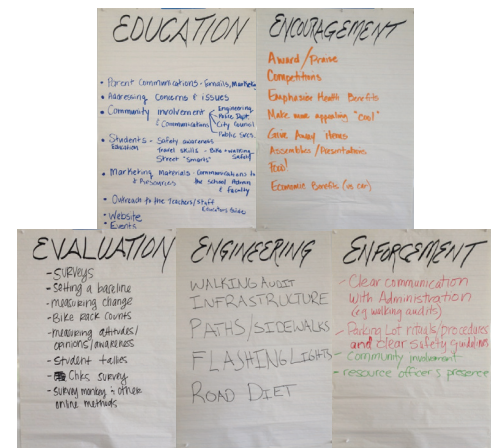 EDUCATION
• Parent Communications - Emails, Marketing
• Addressing Concerns & issues
• Community involvement
& Communications
Engineering
Police Dept.
City Council
Public Svcs.
• Students - Safety awareness
Education
Travel skills - Bike + walking
Safety
Street "Smarts"
• Marketing Materials - Communications to
& Resources
the School Admin
& Faculty
• Outreach to the Teachers/Staff
Educators Guide
• Website
• Events
ENCOURAGEMENT
Award/Praise
Competitions
Emphasize Health Benefits
Make more appealing "Cool"
Give Away Items
Assemblies/Presentations
Food!
Economic Benefits (vs car)
EVALUATION
- Surveys
- Setting a baseline
- measuring change
- Bike Rack Counts
- measuring attitudes/
opinions/awareness
- student tallies
- Chks survey
- survey monkey & other
online methods
ENGINEERING
WALKING AUDIT
INFRASTRUCTURE
PATHS/SIDEWALKS
FLASHING LIGHTS
ROAD DIET
ENFORCEMENT
- Clear communication
with Administration
(eg walking audits)
- Parking Lot rituals/procedures
and clear safety guidelines
- Community involvement
- resource officer's presence